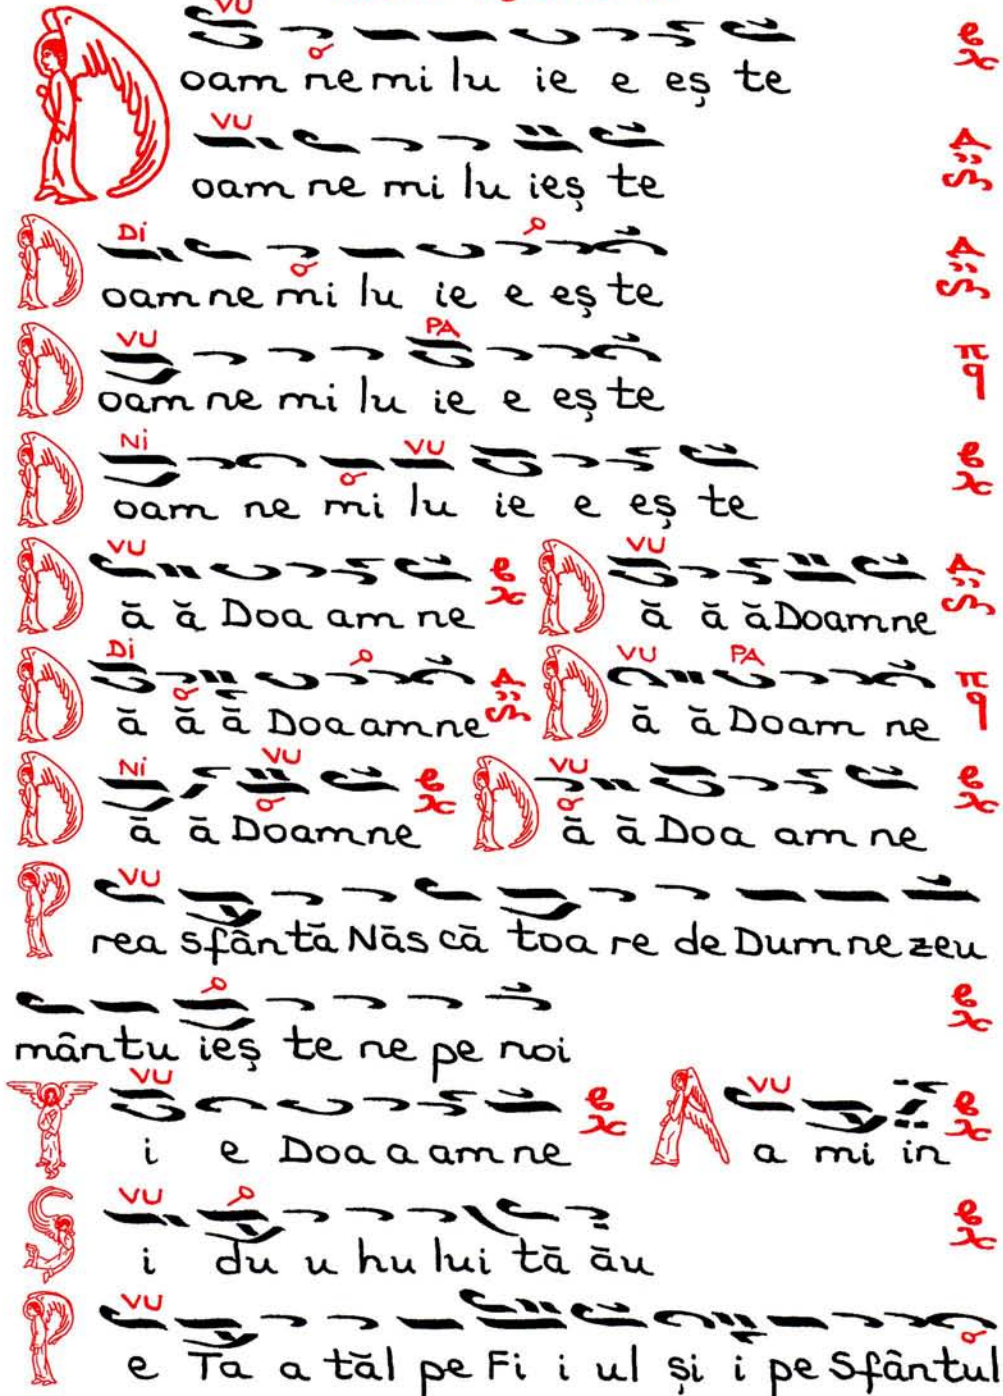 VU
Doam ne mi lu ie e eș te
VU
oam ne mi lu ieș te
DI
Doam ne mi lu ie e eș te
VU PA
Doam ne mi lu ie e eș te
NI VU
Doam ne mi lu ie e eș te
VU VU
D ă ă Doa am ne D ă ă ă Doamne
DI VU PA
D ă ă ă Doa amne D ă ă Doam ne
NI VU VU
D ă ă Doamne D ă ă Doa am ne
VU
Prea sfân tă Năs că toa re de Dum ne zeu
mân tu ieș te ne pe noi
VU VU
Ți e Doa a am ne A a mi in
VU
Și du u hu lui tă ău
VU
Pe Ta a tăl pe Fi i ul și i pe Sfântul